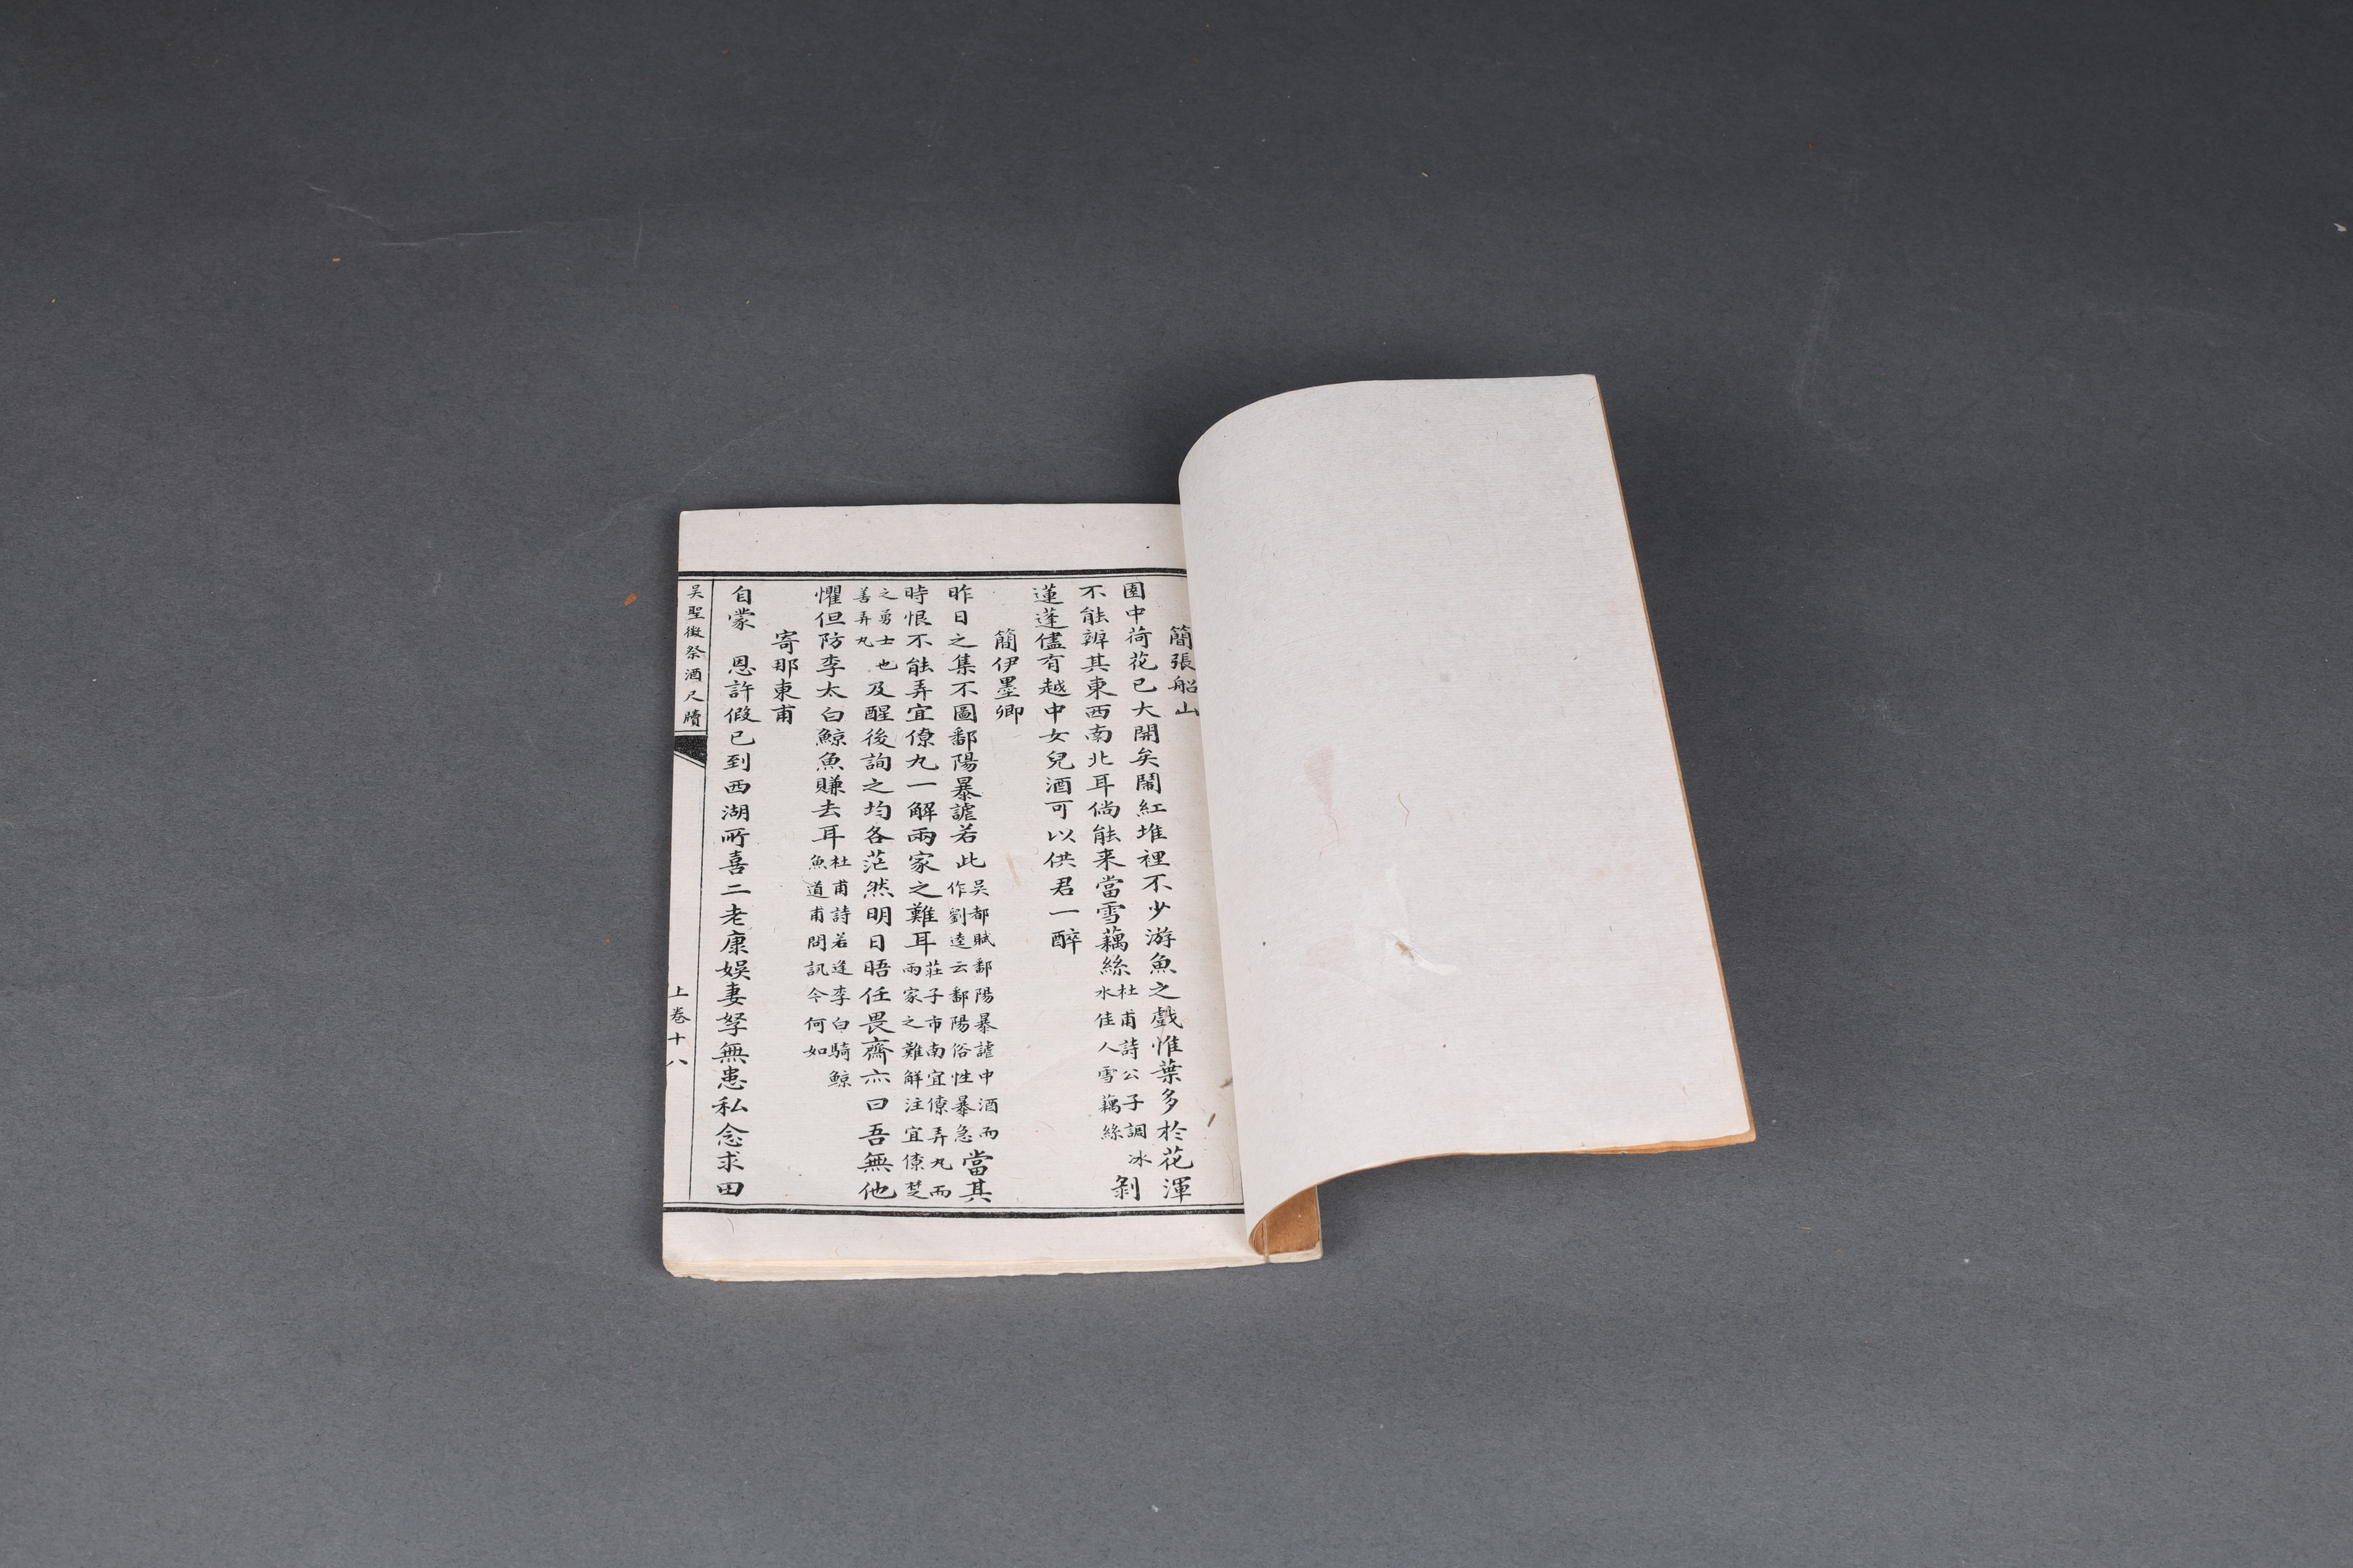 簡張船山
園中荷花已大開矣鬧紅堆裡不少游魚之戲惟葉多於花渾
不能辨其東西南北耳倘能来當雪藕絲杜甫詩公子調冰水佳人雪藕絲剝
蓮蓬儘有越中女兒酒可以供君一醉
簡伊墨卿
昨日之集不圖鄱陽暴謔若此吳都賦鄱陽暴謔中酒而作劉逵云鄱陽俗性暴急當其
時恨不能弄宜僚九一解兩家之難耳莊子市南宜僚弄丸而兩家之難解注宜僚楚
之勇士也善弄丸及醒後詢之均各茫然明日晤任畏齋亦曰吾無他
懼但防李太白鯨魚賺去耳杜甫詩若逢李白騎鯨魚道甫問訊今何如
寄那東甫
自蒙　恩許假已到西湖所喜二老康娛妻孥無患私念求田
吳聖徵祭酒尺牘
上卷十八